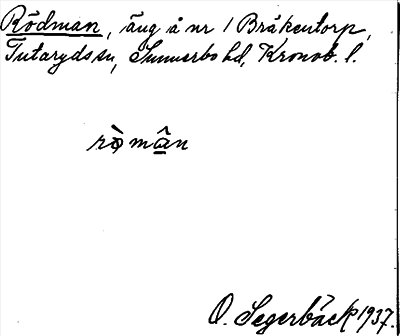 Rödman, äng å nr 1 Bråkentorp,
Tutaryds sn, Sunnerbo hd, Kronob. l.
rò̀mân
O. Segerbäck 1937.